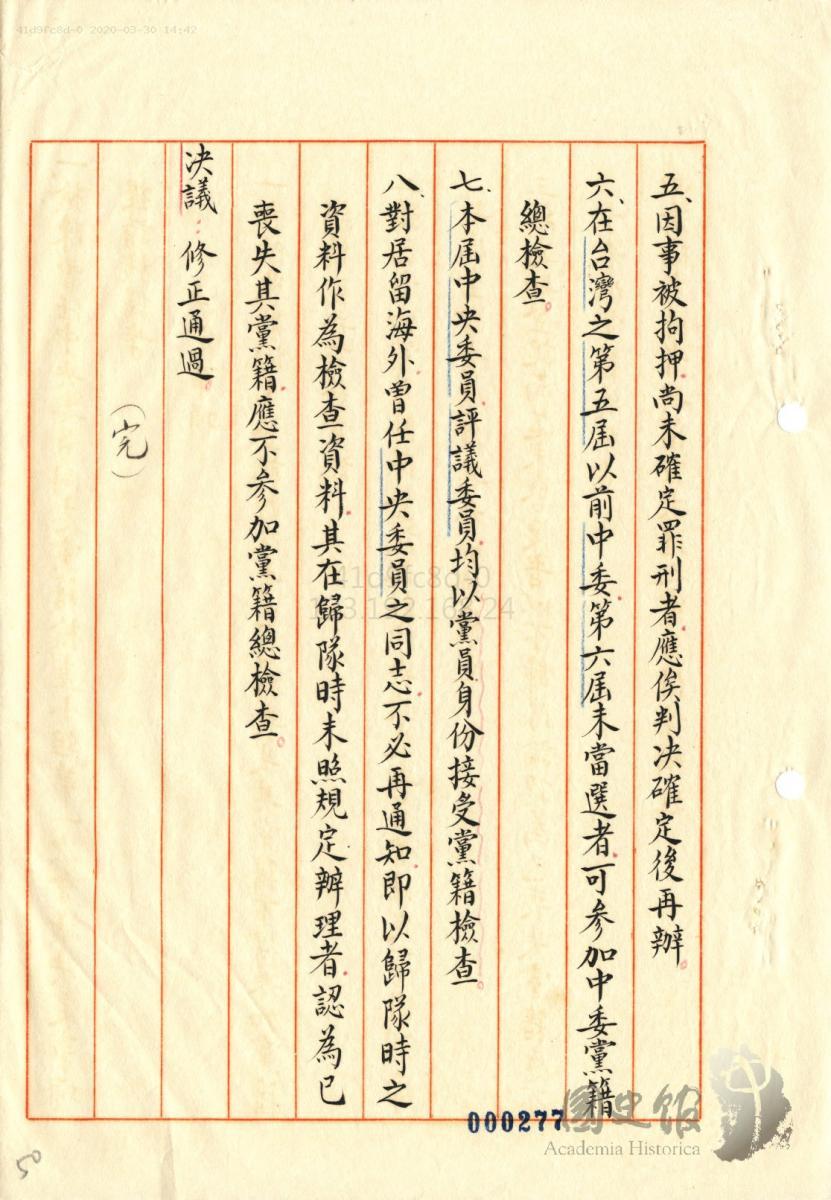 41d9fc8d-0 2020-03-30 14:42
五、因事被拘押尚未確定罪刑者應俟判決確定後再辦。
六、在台灣之第五屆以前中委第六屆未當選者可參加中委黨籍
總檢查。
七、本屆中央委員評議委員均以黨員身份接受黨籍檢查。
八、對居留海外曾任中央委員之同志不必再通知即以歸隊時之
資料作為檢查資料其在歸隊時未照規定辦理者認為已
喪失其黨籍應不參加黨籍總檢查。
決議：修正通過。
（完）
41d9fc8d-0
000277
國史館
Academia Historica